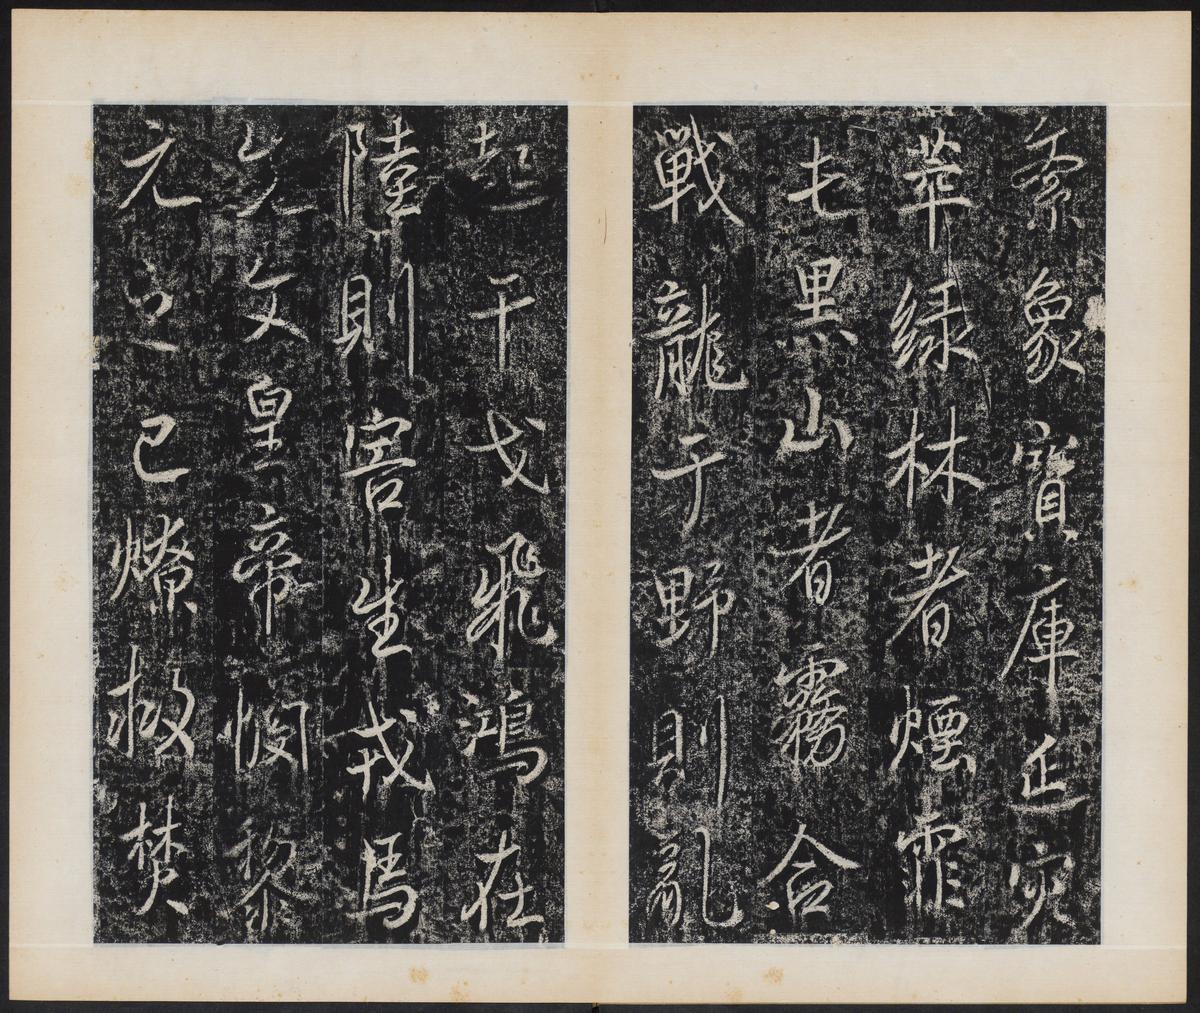 紊象寶庫延災
萃緑林者煙霏
屯黑山者霧合
戰龍于野則亂
起干戈飛鴻在
陸則害生戎馬
先文皇帝憫黎
元之已燎救焚